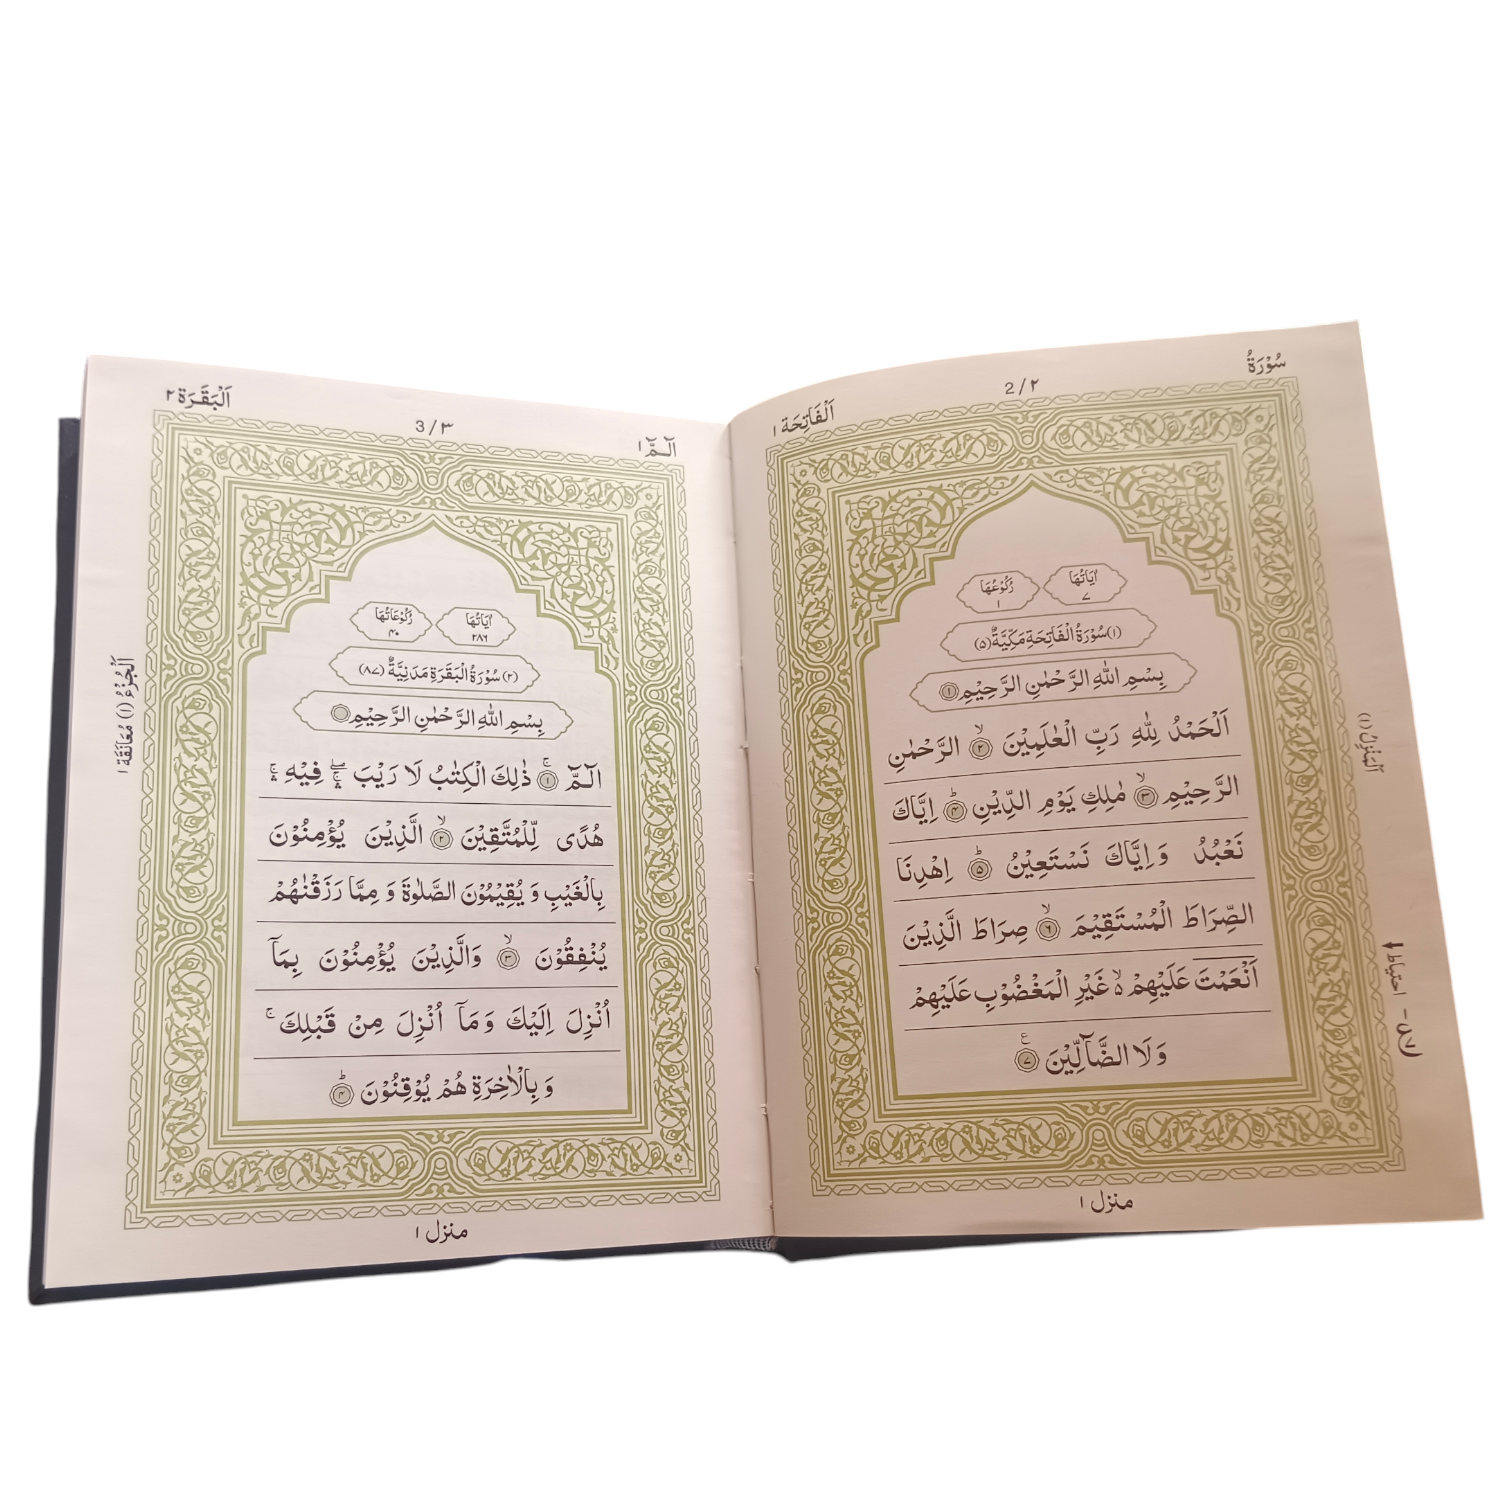 سُوْرَةُ
2/٢
اَلْفَاتِحَة ١
اٰيَاتُهَا
٧
رُكُوْعُهَا
١
(١) سُوْرَةُ الْفَاتِحَةِ مَكِّيَّةٌ (٥)
بِسْمِ اللّٰهِ الرَّحْمٰنِ الرَّحِيْمِ ١
اَلْحَمْدُ لِلّٰهِ رَبِّ الْعٰلَمِيْنَ ۙ ٢ الرَّحْمٰنِ
الرَّحِيْمِ ۙ ٣ مٰلِكِ يَوْمِ الدِّيْنِ ؕ ٤ اِيَّاكَ
نَعْبُدُ وَاِيَّاكَ نَسْتَعِيْنُ ؕ ٥ اِهْدِنَا
الصِّرَاطَ الْمُسْتَقِيْمَ ۙ ٦ صِرَاطَ الَّذِيْنَ
اَنْعَمْتَ عَلَيْهِمْ ۙ۵ غَيْرِ الْمَغْضُوْبِ عَلَيْهِمْ
وَلَا الضَّآلِّيْنَ ٧ ع
منزل ١
اَلْمَنْزِلُ (١)
احتياط
اٰلٓمّٓ ١
3/٣
اَلْبَقَرَة ٢
اٰيَاتُهَا
٢٨٦
رُكُوْعَاتُهَا
۴۰
(٢) سُوْرَةُ الْبَقَرَةِ مَدَنِيَّةٌ (٨٧)
بِسْمِ اللّٰهِ الرَّحْمٰنِ الرَّحِيْمِ
الٓمّٓ ۚ ١ ذٰلِكَ الْكِتٰبُ لَا رَيْبَ ۛۖۚ فِيْهِ ۛۚ
هُدًى لِّلْمُتَّقِيْنَ ۙ ٢ الَّذِيْنَ يُؤْمِنُوْنَ
بِالْغَيْبِ وَ يُقِيْمُوْنَ الصَّلٰوةَ وَ مِمَّا رَزَقْنٰهُمْ
يُنْفِقُوْنَ ۙ ٣ وَالَّذِيْنَ يُؤْمِنُوْنَ بِمَاۤ
اُنْزِلَ اِلَيْكَ وَمَاۤ اُنْزِلَ مِنْ قَبْلِكَ ۚ
وَبِالْاٰخِرَةِ هُمْ يُوْقِنُوْنَ ؕ ٤
منزل ١
اَلْجُزْءُ (١) مُعَانَقَة ١